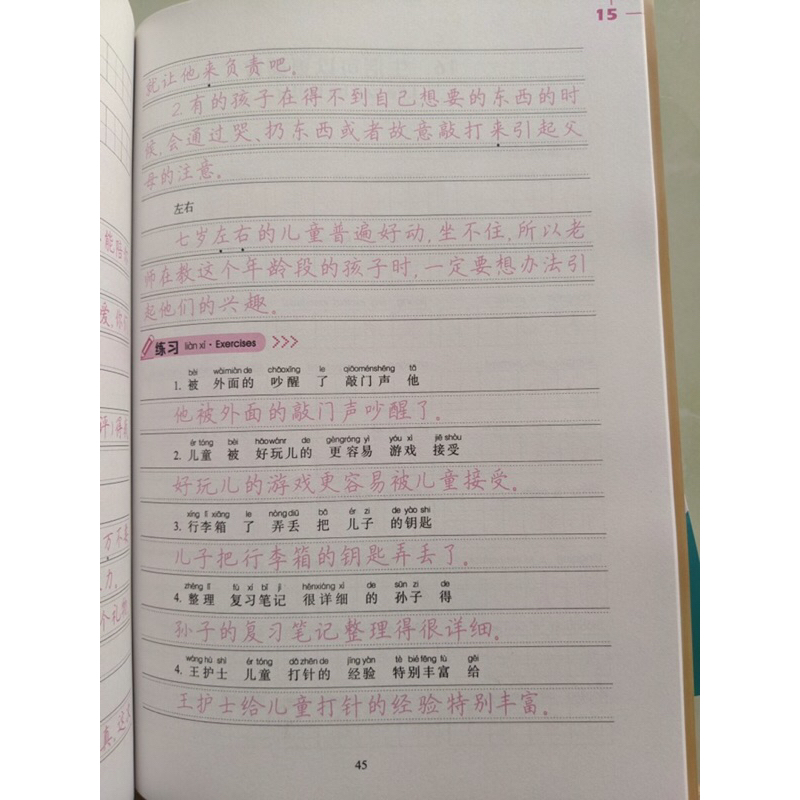 15
就让他来负责吧。
2.有的孩子在得不到自己想要的东西的时
候,会通过哭、扔东西或者故意敲打来引起父
母的注意。
左右
七岁左右的儿童普遍好动,坐不住,所以老
师在教这个年龄段的孩子时,一定要想办法引
起他们的兴趣。
练习 liàn xí · Exercises >>>
bèi wàimiàn de chǎoxǐng le qiāoménshēng tā
1. 被 外面的 吵醒 了 敲门声 他
他被外面的敲门声吵醒了。
ér tóng bèi hǎowánr de gèngróng yì yóu xì jiē shòu
2. 儿童 被 好玩儿的 更容易 游戏 接受
好玩儿的游戏更容易被儿童接受。
xíng lǐ xiāng le nòngdiū bǎ ér zi de yào shi
3. 行李箱 了 弄丢 把 儿子 的钥匙
儿子把行李箱的钥匙弄丢了。
zhěng lǐ fù xí bǐ jì hěnxiáng xì de sūn zi de
4. 整理 复习笔记 很详细 的 孙子 得
孙子的复习笔记整理得很详细。
wáng hù shi ér tóng dǎ zhēn de jīng yàn tè bié fēng fù gěi
4. 王护士 儿童 打针的 经验 特别丰富 给
王护士给儿童打针的经验特别丰富。
45